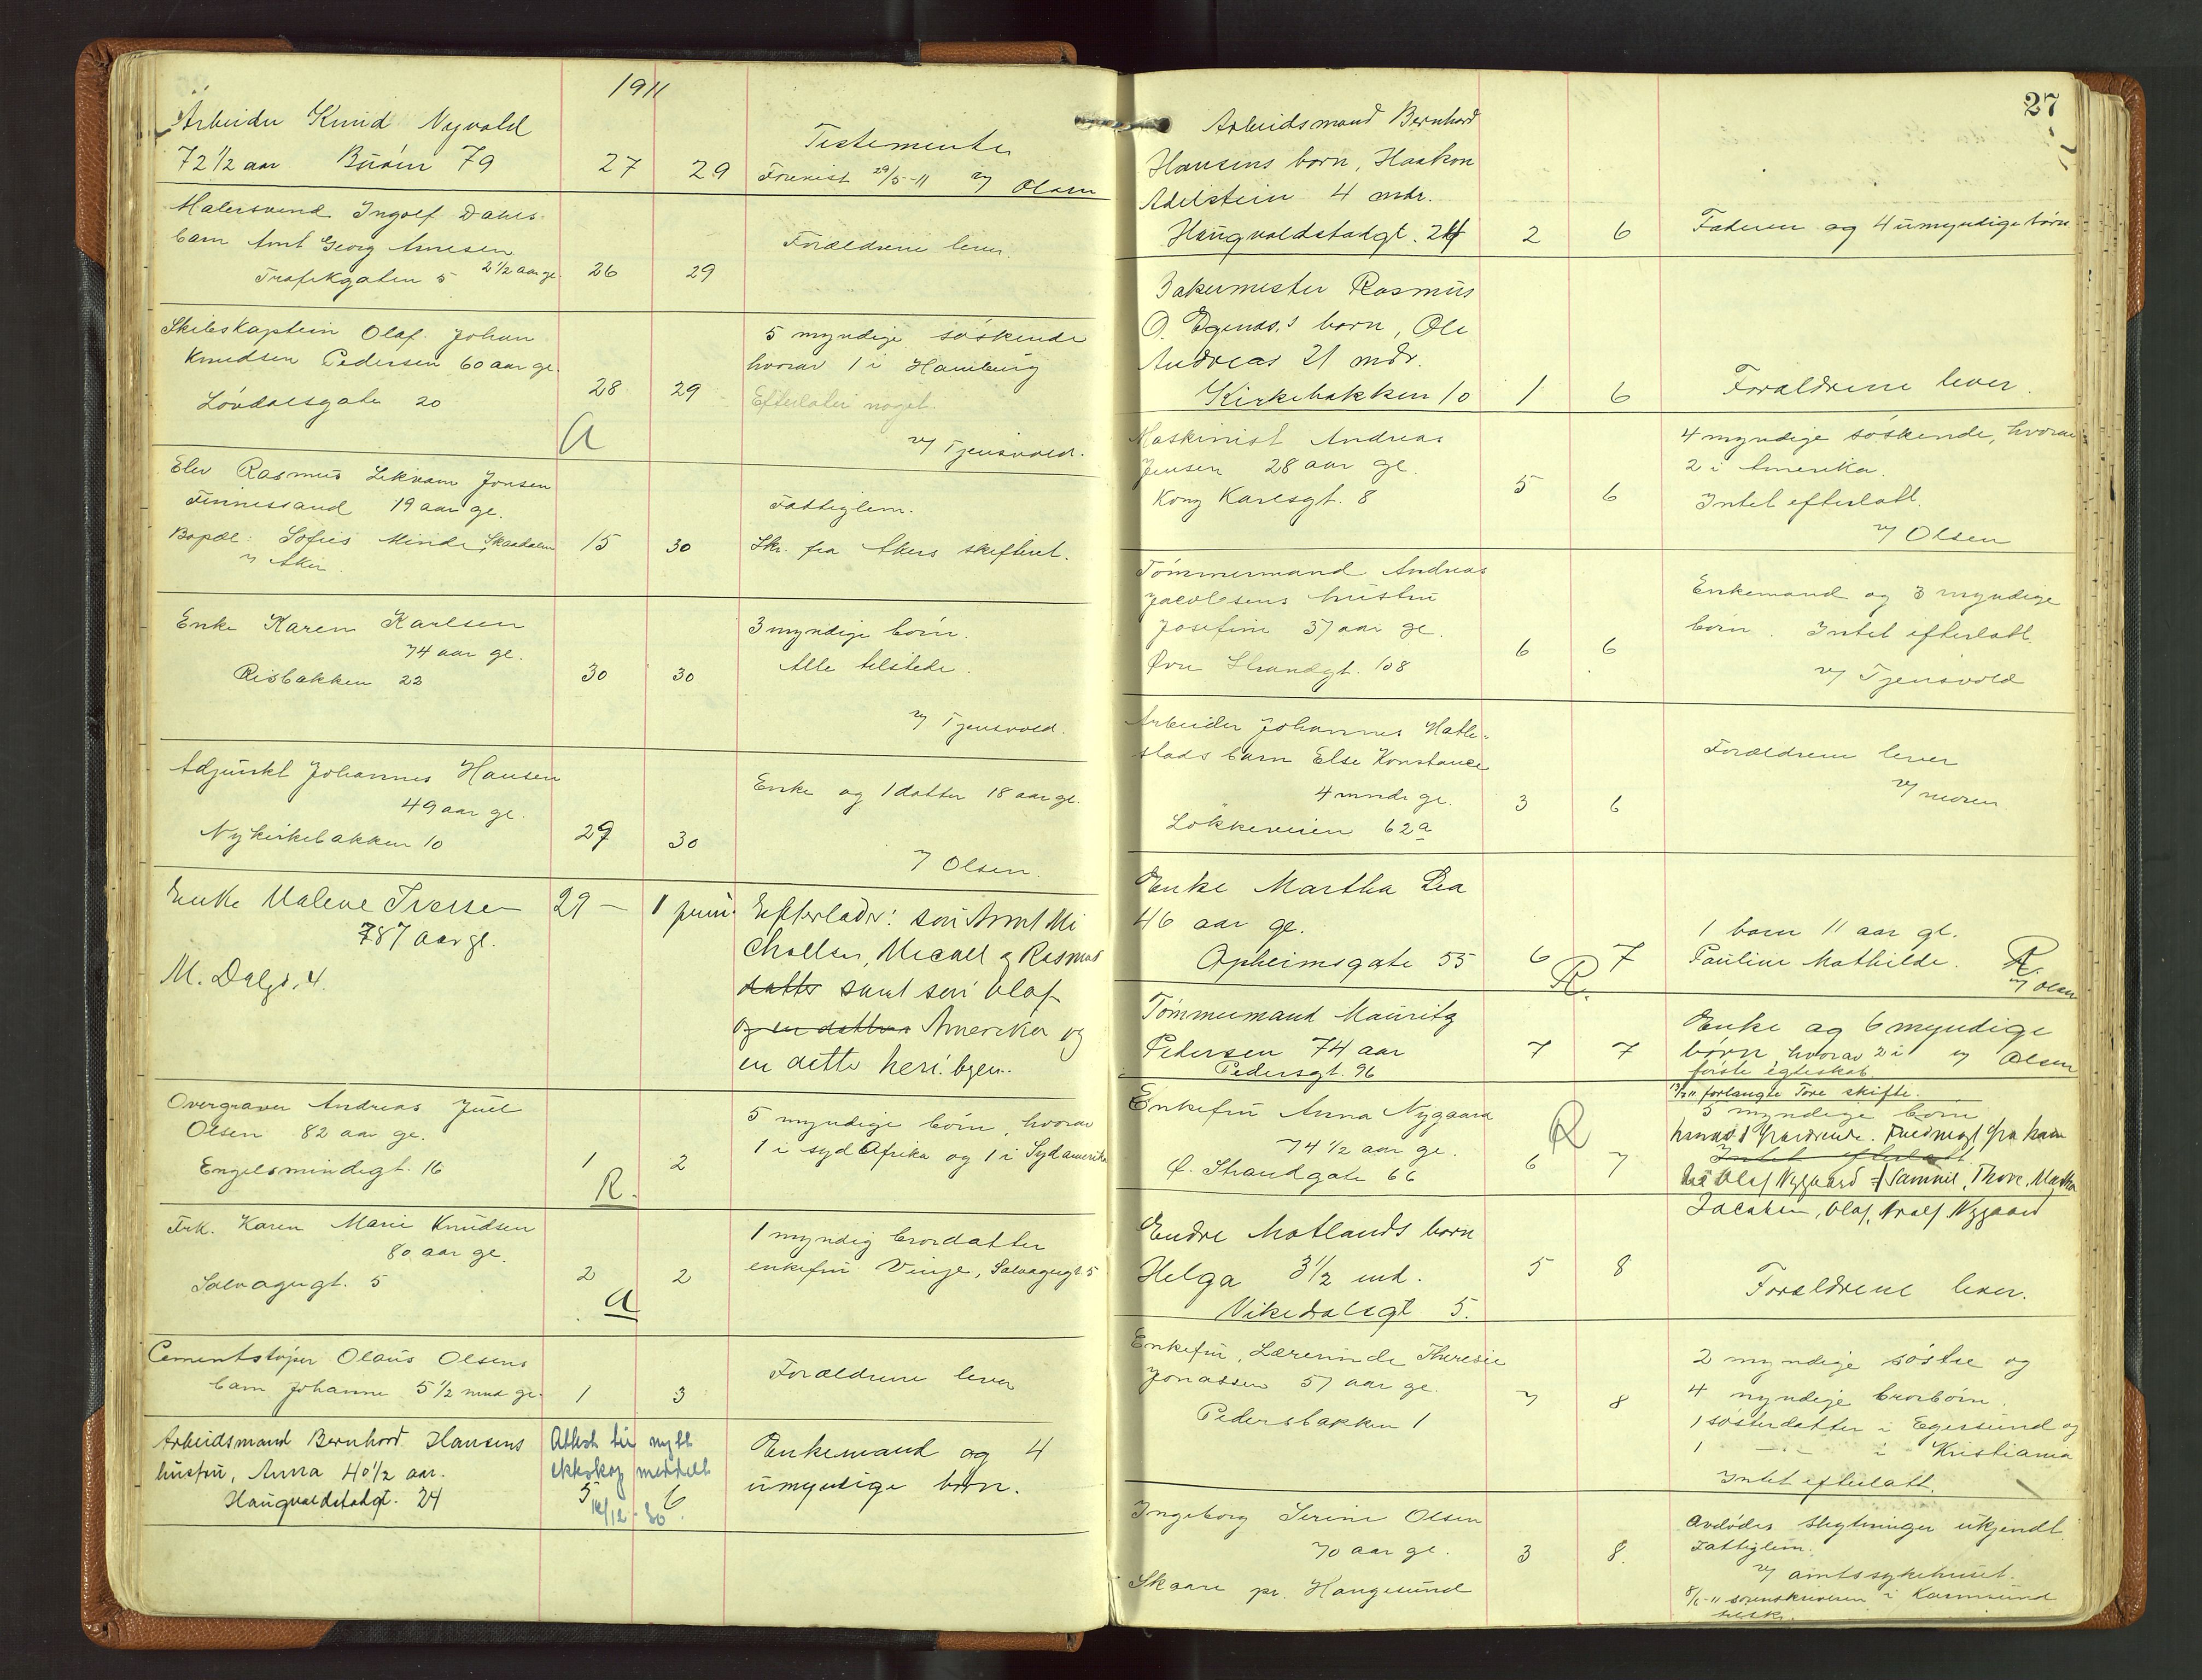 1911
Arbeider Knud Nyvold
72 1/2 aar Buøen 79 27 29 Testemente
Forevist 29/5-11 v/ Olsen
Malersvend Ingolf Dahls
barn Arnt Georg Arnesen
Trafikgaten 5 2 1/2 aar gl. 26 29 Forældrene lever.
Skibskaptein Olaf Johan
Knudsen Pedersen 60 aar gl.
Løvdalsgate 20 28 29
5 myndige søskende
hvorav 1 i Hamburg
Efterlater noget.
v/ Tjensvold.
a
Elev Rasmus Lekvam Jonsen
Finnesand 19 aar gl.
Bopæl: Sofies Minde, Skaadalen
v/ Aker. 15 30
Fattiglem.
Skr. fra Akers skifteret.
Enke Karen Karlsen
74 aar gl.
Risbakken 22 30 30
3 myndige børn.
Alle tilstede.
v/ Tjensvold.
Adjunkt Johannes Hansen
49 aar gl.
Nykirkebakken 10 29 30
Enke og 1 datter 18 aar gl.
v/ Olsen.
Enke Malene Iversen 29 – 1 juni
87 aar gl.
M. Dalgt. 4.
Efterlader: søn Arnt Mi
chaelsen, Micael og Rasmus
datter samt søn Olaf
og en datter i Amerika og
en datter her i byen.
Overgraver Andreas Juel
Olsen 82 aar gl.
Engelsmindegt. 16 1 2
R.
5 myndige børn, hvorav
1 i syd Afrika og 1 i Sydamerika
Frk. Karen Marie Knudsen
80 aar gl.
Solvagugt. 5 2 2
a
1 myndig brordatter
enkefru Vinje, Solvagugt. 5
Cementstøper Olaus Olsens
barn Johanne 5 1/2 mnd gl. 1 3 Forældrene lever
Arbeidsmand Bernhard Hansens
hustru, Anna 40 1/2 aar.
Haugvaldstadgt. 24
Attest til nytt
ekteskap meddelt
5 6
16/12-30
Enkemand og 4
umyndige børn.
27
Arbeidsmand Bernhard
Hansens barn, Haakon
Adelstein 4 mdr.
Haugvaldstadgt. 24 2 6 Faderen og 4 umyndige børn
Bakermester Rasmus
O. Egenæs's barn, Ole
Andreas 21 mdr.
Kirkebakken 10 1 6 Forældrene lever.
Maskinist Andreas
Jensen 28 aar gl.
Kong Karlsgt. 8 5 6
4 myndige søskende, hvorav
2 i Amerika.
Intet efterlatt.
v/ Olsen
Tømmermand Andreas
Jacobsens hustru
Josefine 57 aar gl.
Øvre Strandgt. 108 6 6
Enkemand og 3 myndige
børn. Intet efterlatt
v/ Tjensvold
Arbeider Johannes Hatle-
stads barn Else Konstance
4 mndr gl.
Løkkeveien 62a 3 6
Forældrene lever
v/ moren
Enke Martha Lea
46 aar gl.
Opheimsgate 55 6 7
R.
1 barn 11 aar gl.
Pauline Mathilde. R.
v/ Olsen
Tømmermand Mauritz
Pedersen 74 aar
Pedersgt. 96 7 7
Enke og 6 myndige
børn, hvorav 2 i v/ Olsen
første egteskab.
Enkefru Anna Nygaard
74 1/2 aar gl.
Ø. Strandgate 66 6 7
R
forlangte Tore skifte.
5 myndige børn
Intet efterlatt
Olaf Nygaard Samuel, Thore, Martha
Jacobsen, Olaf, Nygaard
Endre Motlands barn
Helga 3 1/2 md.
Vikedalsgt 5. 5 8 Forældrene lever.
Enkefru, Lærerinde Theresie
Jonassen 57 aar gl.
Pedersbakken 1 7 8
2 myndige søstre og
4 myndige brorbørn.
1 søsterdatter i Egersund og
1 – " – i Kristiania
Intet efterlatt.
Ingeborg Serine Olsen
70 aar gl.
Skaare pr. Haugesund 3 8.
Avdødes slegtninger ukjendt
Fattiglem.
v/ amtssykehuset.
8/6-11 sorenskriveren i Karmsund
tilskr.